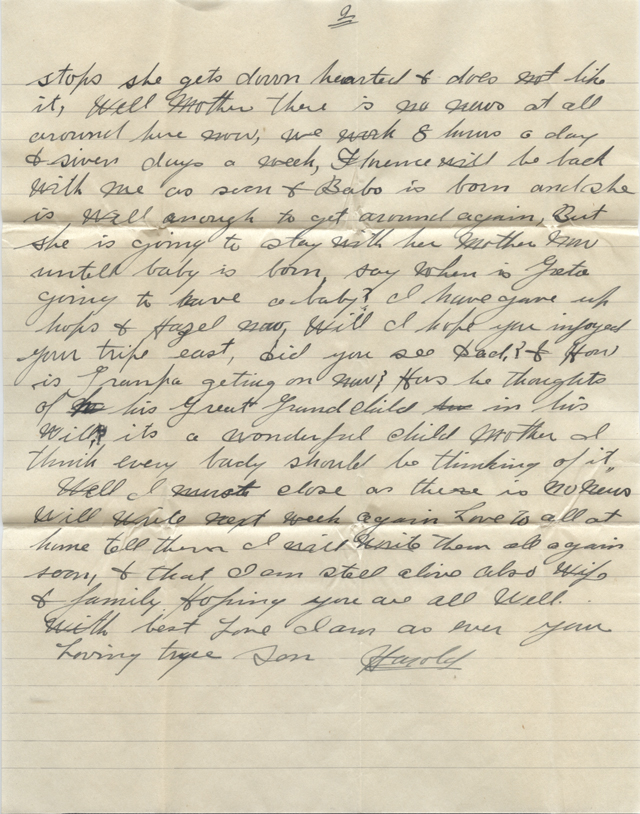 2
stops she gets down hearted & does not like
it, Well Mother there is no news at all
around here now, we work 8 hours a day
& siven days a week, Florence will be back
with me as soon & Babo is born and she
is well enough to get around again, But
she is going to stay with her Mother Now
untell baby is born, say When is Greta
going to have a baby? I have gave up
hops & Hazel now, Will I hope you injoyed
your tripe east, did you see Dad,? & How
is Granpa geting on now? Has he thoughts
of his Great Grand child in his
Will? its a wonderful child Mother I
think every body should be thinking of it,,
Well I must close as there is No News
Will write next week again Love to all at
home tell them I will write them all again
soon, & that I am stell alive also Wife
& family, Hoping you are all Well.
With best Love I am as ever your
Loving true Son Harold